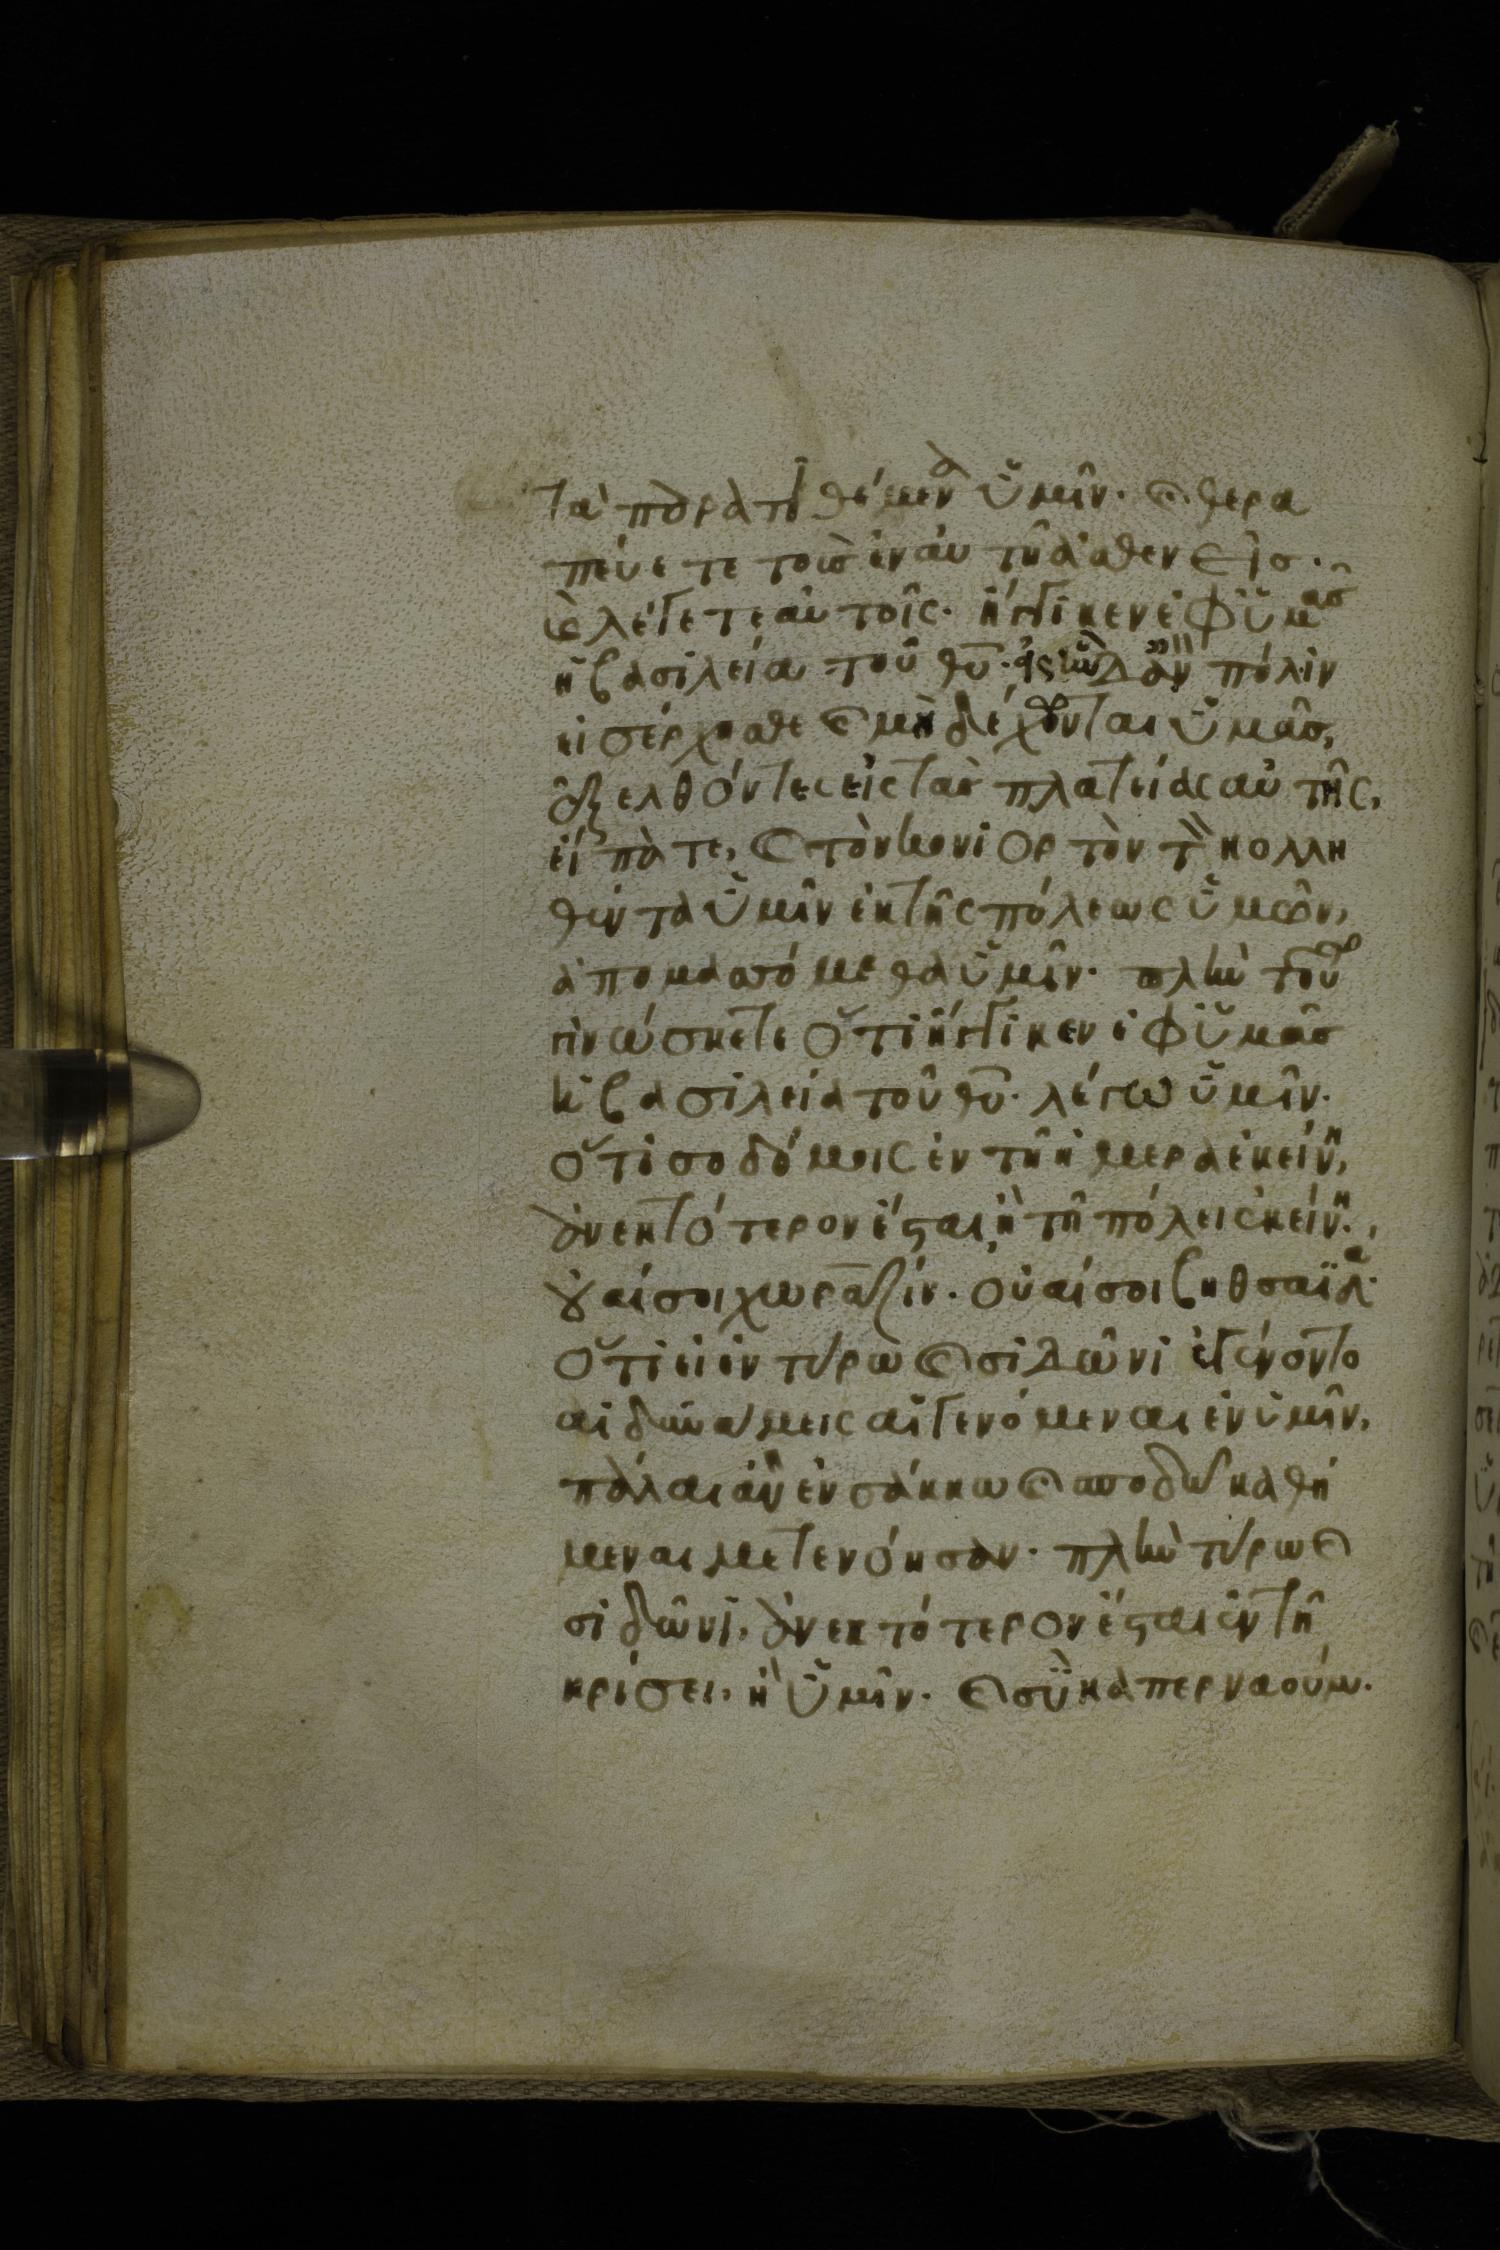 τὰ παρατιθέμενα ὑμῖν· καὶ θερα
πεύετε τοὺς ἐν αὐτῆ ἀσθενεῖσ·
καὶ λέγετε αὐτοῖς· ἤγγικεν ἐφ ὑμᾶσ
ἡ βασιλεία τοῦ θυ̅· εἰς ἣν δ ἂν πόλιν
εἰσέρχησθε καὶ μὴ δέχονται ὑμᾶσ,
ἐξελθόντες εἰς τὰσ πλατείας αὐτῆς,
εἴπατε, καὶ τὸν κονιορτὸν τὸν κολλη
θέντα ὑμῖν ἐκ τῆς πόλεως ὑμῶν,
ἀπομασσόμεθα ὑμῖν· πλὴν τοῦτο
γινώσκετε ὅτι ἤγγικεν ἐφ ὑμᾶσ
ἡ βασιλεία τοῦ θυ̅· λέγω ὑμῖν·
ὅτι σοδόμοις ἐν τῆ ἡμέρα ἐκείνη,
ἀνεκτότερον ἔσται, ἢ τῆ πόλει ἐκείνη·
οὐαί σοι χωραζίν· οὐαί σοι βηθσαϊδά·
ὅτι εἰ ἐν τύρω καὶ σιδῶνι ἐγένοντο
αἱ δυνάμεις αἱ γενόμεναι ἐν ὑμῖν,
πάλαι ἂν ἐν σάκκω καὶ σποδῶ καθή
μεναι μετενόησαν· πλὴν τύρω καὶ
σιδῶνι, ἀνεκτότερον ἔσται ἐν τῆ
κρίσει, ἢ ὑμῖν· καὶ σὺ καπερναούμ·